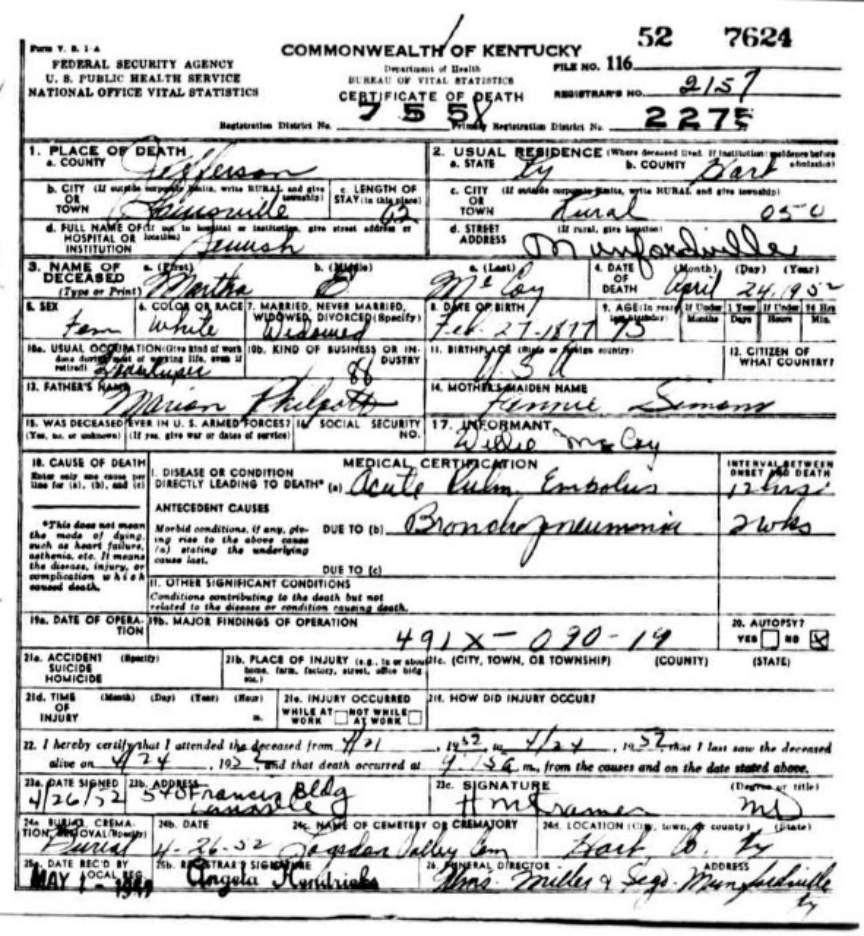 Form V. S. 1-A
FEDERAL SECURITY AGENCY
U. S. PUBLIC HEALTH SERVICE
NATIONAL OFFICE VITAL STATISTICS
COMMONWEALTH OF KENTUCKY
Department of Health
BUREAU OF VITAL STATISTICS
CERTIFICATE OF DEATH
52 7624
FILE NO. 116
REGISTRAR'S NO. 2157
Registration District No. 755 Primary Registration District No. 2275
1. PLACE OF DEATH
a. COUNTY Jefferson
b. CITY (If outside corporate limits, write RURAL and give township)
OR TOWN Louisville
c. LENGTH OF STAY (in this place)
d. FULL NAME OF (If not in hospital or institution, give street address or location)
HOSPITAL OR INSTITUTION Jewish
2. USUAL RESIDENCE (Where deceased lived. If institution: residence before admission)
a. STATE Ky b. COUNTY Hart
c. CITY (If outside corporate limits, write RURAL and give township)
OR TOWN Rural 050
d. STREET ADDRESS (If rural, give location) Munfordville
3. NAME OF DECEASED (Type or Print)
a. (First) Martha b. (Middle) E c. (Last) McCoy
4. DATE OF DEATH (Month) (Day) (Year) April 24, 1952
5. SEX Fem
6. COLOR OR RACE White
7. MARRIED, NEVER MARRIED, WIDOWED, DIVORCED (Specify) Widowed
8. DATE OF BIRTH Feb. 27-1877
9. AGE (In years last birthday) 75 If Under 1 Year Months Days If Under 24 Hrs Hours Min.
10a. USUAL OCCUPATION (Give kind of work done during most of working life, even if retired)
10b. KIND OF BUSINESS OR INDUSTRY
11. BIRTHPLACE (State or foreign country) USA
12. CITIZEN OF WHAT COUNTRY?
13. FATHER'S NAME Marion Philpott
14. MOTHER'S MAIDEN NAME Fannie Simons
15. WAS DECEASED EVER IN U. S. ARMED FORCES? (Yes, no, or unknown) (If yes, give war or dates of service)
16. SOCIAL SECURITY NO.
17. INFORMANT Willie McCoy
18. CAUSE OF DEATH
Enter only one cause per line for (a), (b), and (c)
MEDICAL CERTIFICATION
INTERVAL BETWEEN ONSET AND DEATH
I. DISEASE OR CONDITION DIRECTLY LEADING TO DEATH* (a) Acute Pulm. Embolus 12 hrs
*This does not mean the mode of dying, such as heart failure, asthenia, etc. It means the disease, injury, or complication which caused death.
ANTECEDENT CAUSES
Morbid conditions, if any, giving rise to the above cause (a) stating the underlying cause last.
DUE TO (b) Bronchopneumonia 2 wks
DUE TO (c)
II. OTHER SIGNIFICANT CONDITIONS
Conditions contributing to the death but not related to the disease or condition causing death.
19a. DATE OF OPERATION
19b. MAJOR FINDINGS OF OPERATION
491X-090-19
20. AUTOPSY? YES NO X
21a. ACCIDENT SUICIDE HOMICIDE (Specify)
21b. PLACE OF INJURY (e.g., in or about home, farm, factory, street, office bldg etc.)
21c. (CITY, TOWN, OR TOWNSHIP) (COUNTY) (STATE)
21d. TIME OF INJURY (Month) (Day) (Year) (Hour) m.
21e. INJURY OCCURRED WHILE AT WORK NOT WHILE AT WORK
21f. HOW DID INJURY OCCUR?
22. I hereby certify that I attended the deceased from 4/21, 1952, to 4/24, 1952, that I last saw the deceased
alive on 4/24, 1952, and that death occurred at m., from the causes and on the date stated above.
23a. DATE SIGNED 4/26/52
23b. ADDRESS 540 Francis Bldg Louisville
23c. SIGNATURE H M Kramer (Degree or title) MD
24a. BURIAL, CREMATION, REMOVAL (Specify) Burial
24b. DATE 4-26-52
24c. NAME OF CEMETERY OR CREMATORY Logsdon Valley Cem
24d. LOCATION (City, town, or county) (State) Hart Co. Ky
25a. DATE REC'D BY LOCAL REG. MAY 1-
25b. REGISTRAR'S SIGNATURE Angela Hendricks
26. FUNERAL DIRECTOR ADDRESS
Miller & Sego. Munfordville Ky